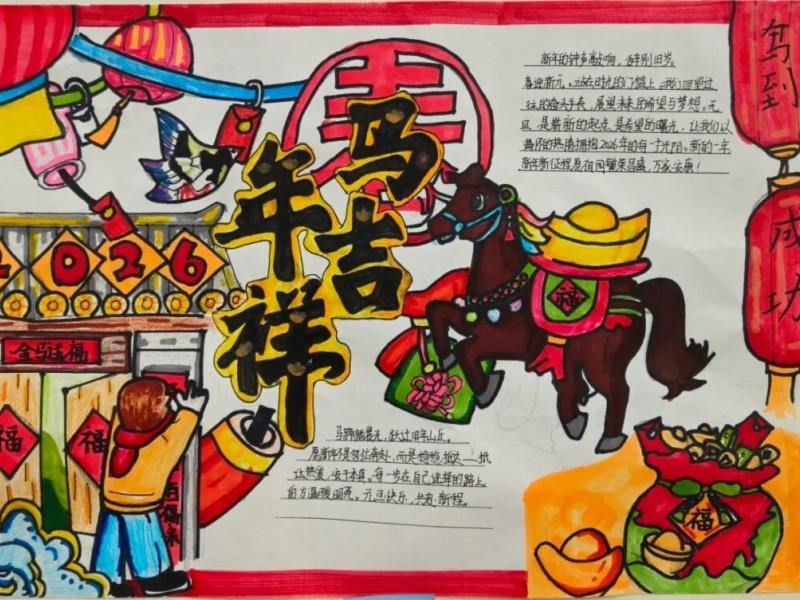 新年的钟声敲响，告别旧岁，
喜迎新元。站在时光的门槛上，我们回望过
往的奋斗手表，展望未来的希望与梦想。元
旦，是崭新的起点，是希望的曙光，让我们以
满怀的热情拥抱2026年的每一寸光阴。新的一年
新年新征程愿祖国繁荣昌盛，万家安康！
驾到
成功
马吉
年祥
春
2026
金马送福
福
福
福
福
马蹄踏晨光，跃过旧年山丘。
愿新年不是匆忙奔赴，而是
让热爱，每一步在自己选择的路上
前方温暖明亮。元旦快乐，共赴新程。